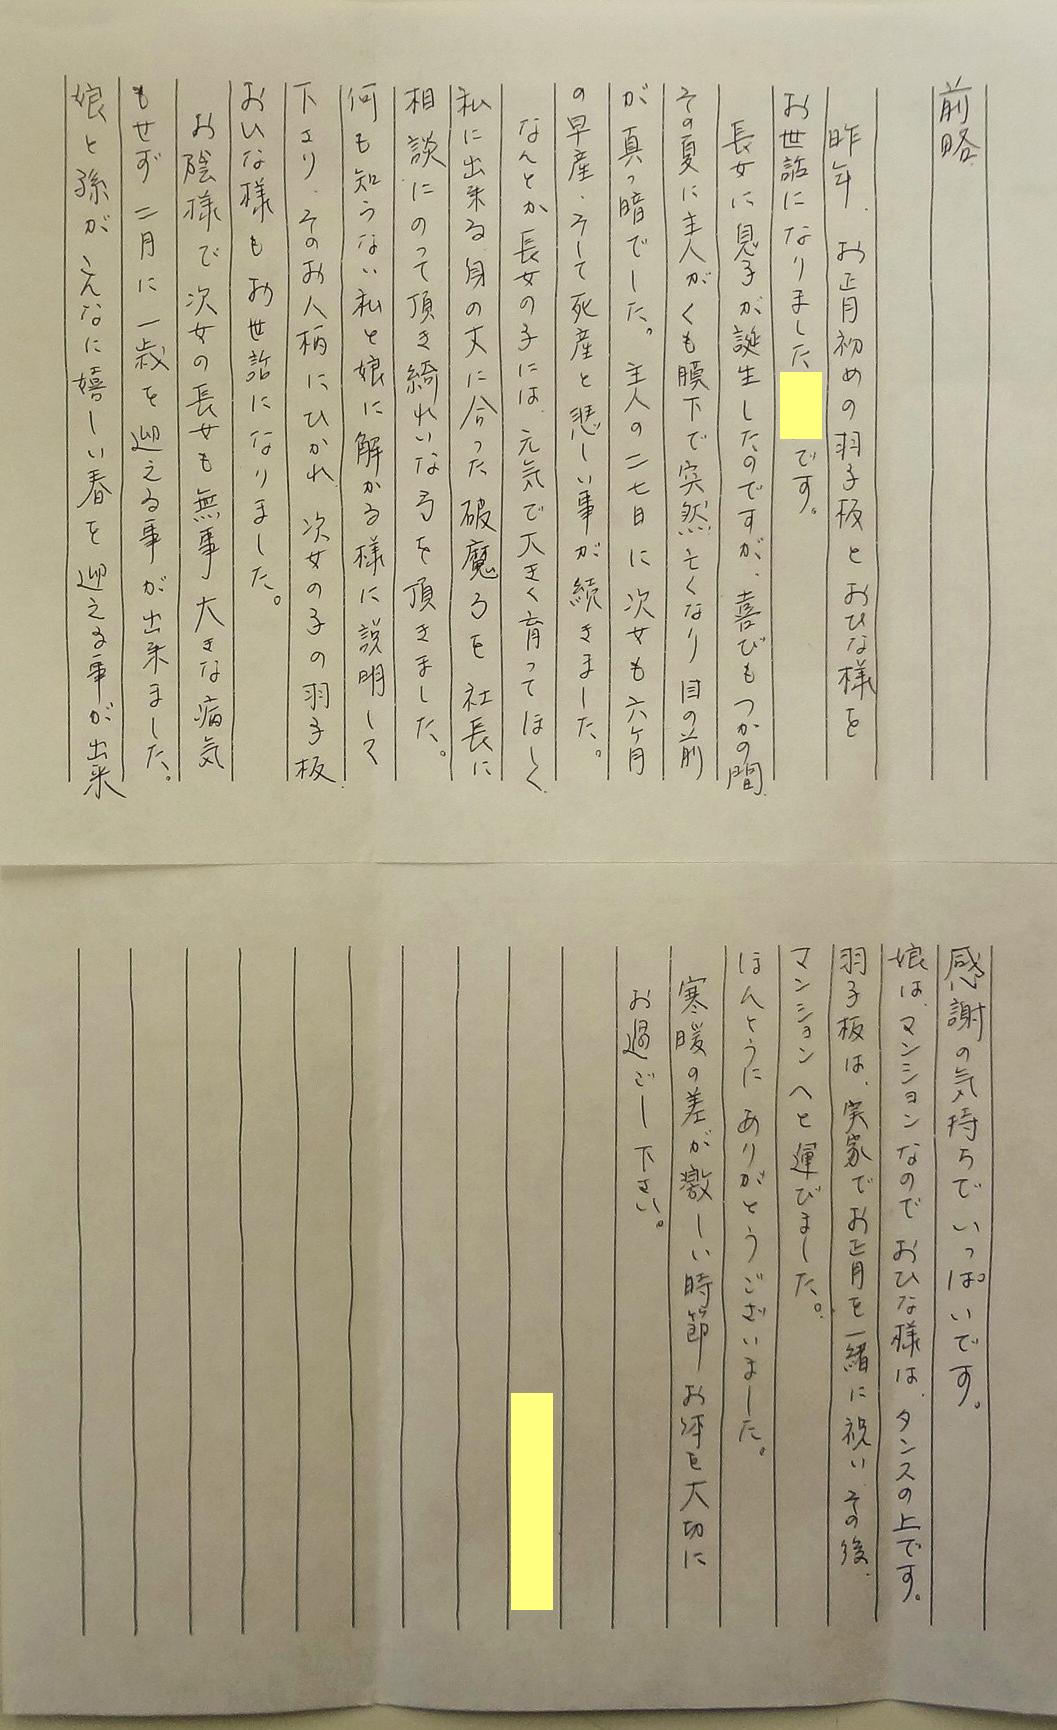 前略
昨年、お正月初めの羽子板とおひな様を
お世話になりました です。
長女に息子が誕生したのですが、喜びもつかの間
その夏に主人がくも膜下で突然亡くなり目の前
が真っ暗でした。主人の二七日に次女も六ケ月
の早産、そして死産と悲しい事が続きました。
なんとか長女の子には、元気で大きく育ってほしく
私に出来る身の丈に合った破魔弓を社長に
相談にのって頂き綺れいな弓を頂きました。
何も知らない私と娘に解かる様に説明して
下さり、そのお人柄にひかれ、次女の子の羽子板、
おひな様もお世話になりました。
お陰様で次女の長女も無事大きな病気
もせず二月に一歳を迎える事が出来ました。
娘と孫がこんなに嬉しい春を迎える事が出来
感謝の気持ちでいっぱいです。
娘は、マンションなのでおひな様は、タンスの上です。
羽子板は、実家でお正月を一緒に祝い、その後、
マンションへと運びました。
ほんとうにありがとうございました。
寒暖の差が激しい時節、お体を大切に
お過ごし下さい。